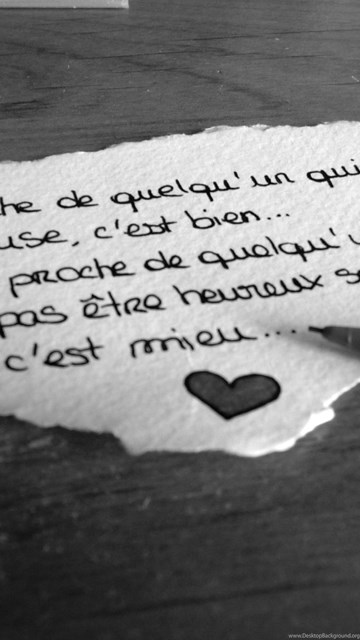 he de quelqu'un qui
use, c'est bien...
proche de quelqu'
pas être heureux s
c'est mieu....
www.DesktopBackground.org